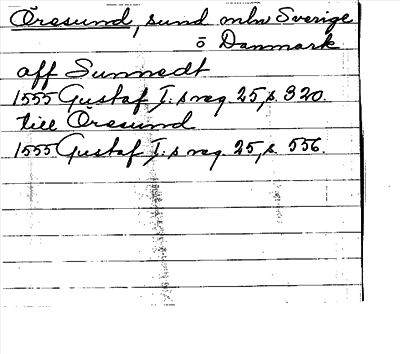 Öresund, sund mlm Sverige
o Danmark
aff Sunnedt
1555 Gustaf I:s reg. 25, s. 320.
till Öresund
1555 Gustaf I:s reg. 25, s. 556.